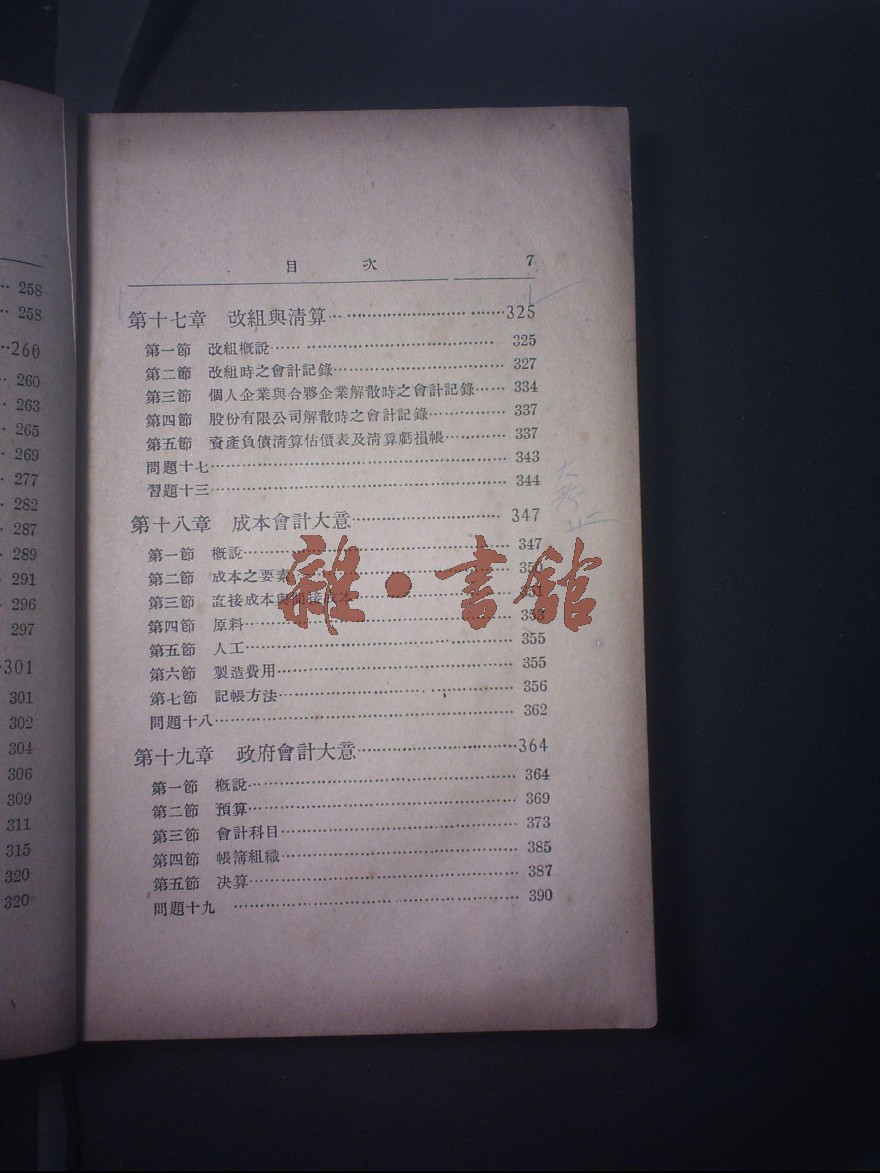 258
258
260
260
263
265
269
277
282
287
289
291
296
297
301
301
302
304
306
309
311
315
320
320
目 次 7
第十七章 改組與清算 325
第一節 改組概說 325
第二節 改組時之會計記錄 327
第三節 個人企業與合夥企業解散時之會計記錄 334
第四節 股份有限公司解散時之會計記錄 337
第五節 資產負債清算估價表及清算虧損帳 337
問題十七 343
習題十三 344
第十八章 成本會計大意 347
第一節 概說 347
第二節 成本之要素 350
第三節 直接成本與間接成本 351
第四節 原料 353
第五節 人工 355
第六節 製造費用 355
第七節 記帳方法 356
問題十八 362
第十九章 政府會計大意 364
第一節 概說 364
第二節 預算 369
第三節 會計科目 373
第四節 帳簿組織 385
第五節 決算 387
問題十九 390
大考止
雜·書館